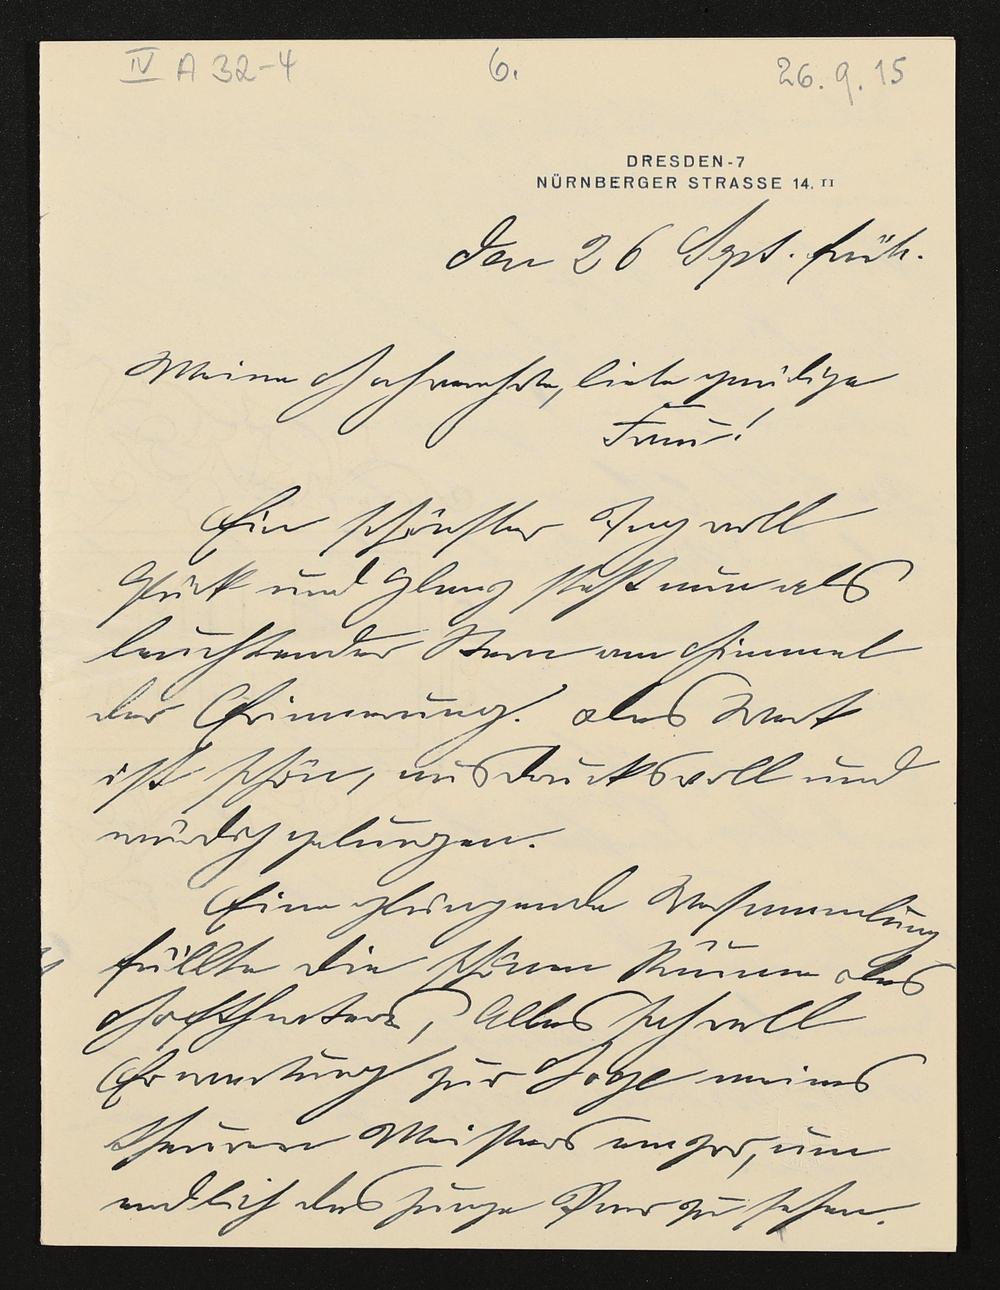 IV A 32-4
6.
26.9.15
DRESDEN-7
NÜRNBERGER STRASSE 14. II
Den 26 Sept. früh.
Meine Hochverehrte, liebe gnädige
Frau!
Ein schönster Tag voll
Glück und Glanz steht nun als
leuchtender Stern am Himmel
der Erinnerung. Das Werk
ist schön, ausdrucksvoll und
würdig gelungen.
Eine glänzende Versammlung
füllte die schönen Räume des
Hoftheaters, Alles sah voll
Erwartung zur Loge meines
theuren Meisters empor, um
endlich das junge Paar zu sehen.